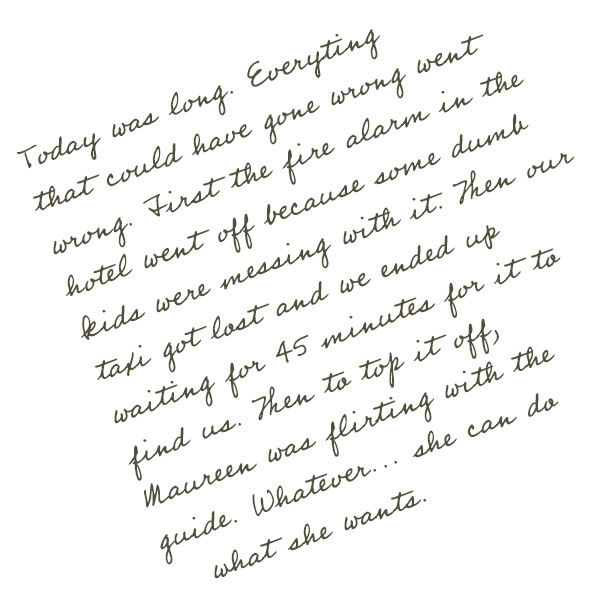 Today was long. Everyting
that could have gone wrong went
wrong. First the fire alarm in the
hotel went off because some dumb
kids were messing with it. Then our
taxi got lost and we ended up
waiting for 45 minutes for it to
find us. Then to top it off,
Maureen was flirting with the
guide. Whatever... she can do
what she wants.